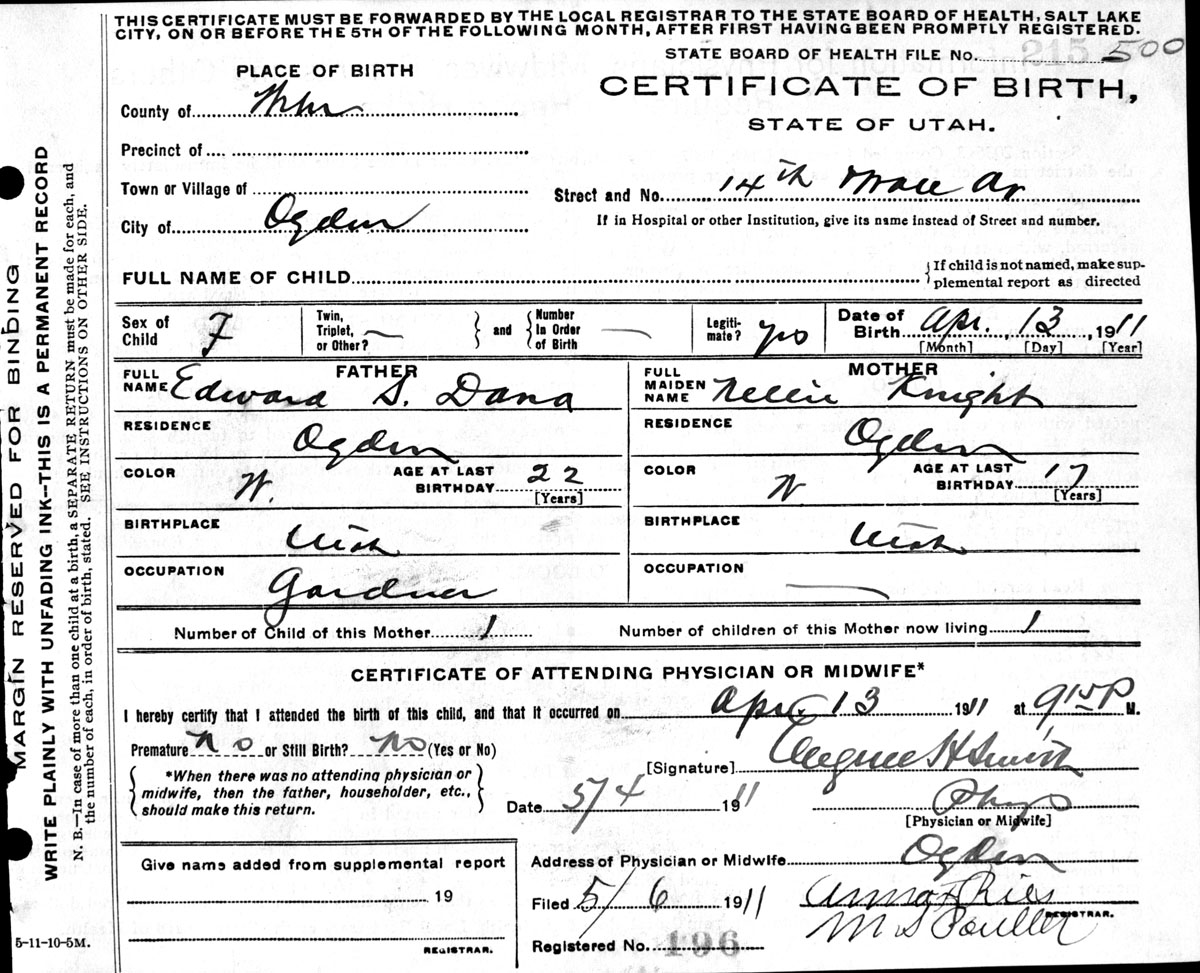 THIS CERTIFICATE MUST BE FORWARDED BY THE LOCAL REGISTRAR TO THE STATE BOARD OF HEALTH, SALT LAKE
CITY, ON OR BEFORE THE 5TH OF THE FOLLOWING MONTH, AFTER FIRST HAVING BEEN PROMPTLY REGISTERED.
STATE BOARD OF HEALTH FILE No. 500
PLACE OF BIRTH
CERTIFICATE OF BIRTH,
STATE OF UTAH.
County of
Precinct of
Town or Village of
Street and No. 14th
City of Ogden
If in Hospital or other Institution, give its name instead of Street and number.
FULL NAME OF CHILD
{If child is not named, make sup-
plemental report as directed
Sex of Child F
Twin, Triplet, or Other? —
} and {
Number In Order of Birth —
Legiti-mate? yes
Date of Birth Apr. 13, 1911
[Month] [Day] [Year]
FATHER
FULL NAME Edward S. Dana
RESIDENCE Ogden
COLOR W.
AGE AT LAST BIRTHDAY 22
[Years]
BIRTHPLACE Utah
OCCUPATION Gardner
MOTHER
FULL MAIDEN NAME Nellie Knight
RESIDENCE Ogden
COLOR W
AGE AT LAST BIRTHDAY 17
[Years]
BIRTHPLACE Utah
OCCUPATION —
Number of Child of this Mother 1
Number of children of this Mother now living 1
CERTIFICATE OF ATTENDING PHYSICIAN OR MIDWIFE*
I hereby certify that I attended the birth of this child, and that it occurred on Apr. 13 1911 at 9 15 P M.
Premature? No or Still Birth? No (Yes or No)
*When there was no attending physician or
midwife, then the father, householder, etc.,
should make this return.
[Signature] H Smith
Date 5/4 1911
Phys
[Physician or Midwife]
Give name added from supplemental report
19
REGISTRAR.
Address of Physician or Midwife Ogden
Filed 5/6 1911
Anna Ries
REGISTRAR.
M S
Registered No. 196
5-11-10-5M.
MARGIN RESERVED FOR BINDING
WRITE PLAINLY WITH UNFADING INK—THIS IS A PERMANENT RECORD
N. B.—In case of more than one child at a birth, a SEPARATE RETURN must be made for each, and
the number of each, in order of birth, stated. SEE INSTRUCTIONS ON OTHER SIDE.